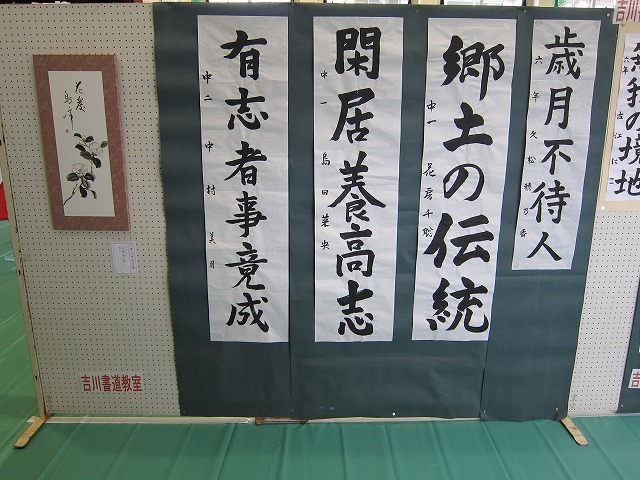 歳月不待人
六年 久松穂乃香
郷土の伝統
中一 花房千聡
閑居養高志
中一 島田菜央
有志者事竟成
中二 中村美月
吉川書道教室
の境地
六年